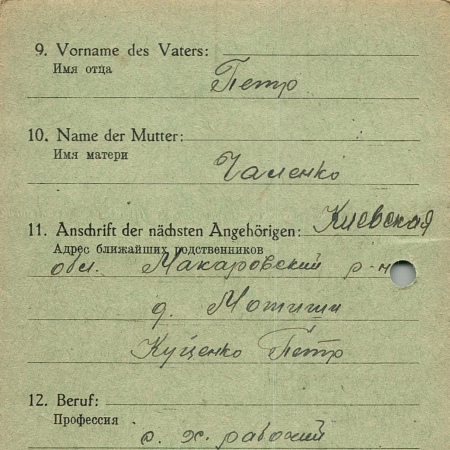 9. Vorname des Vaters:
Имя отца
Петр
10. Name der Mutter:
Имя матери
Чаленко
11. Anschrift der nächsten Angehörigen: Киевская
Адрес ближайших родственников
обл. Макаровский р-н
д. Мотижи
Куценко Петр
12. Beruf:
Профессия
с. х. рабочий